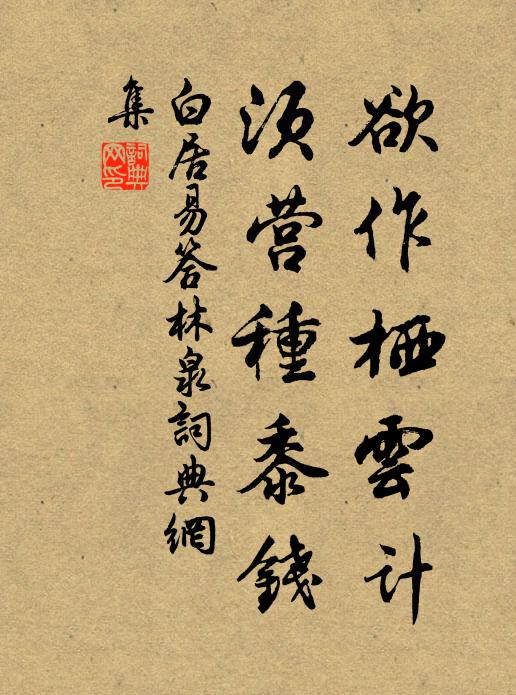 欲作栖雲计
须营種黍錢
白居易答林泉詞典網
集
詞典
网印